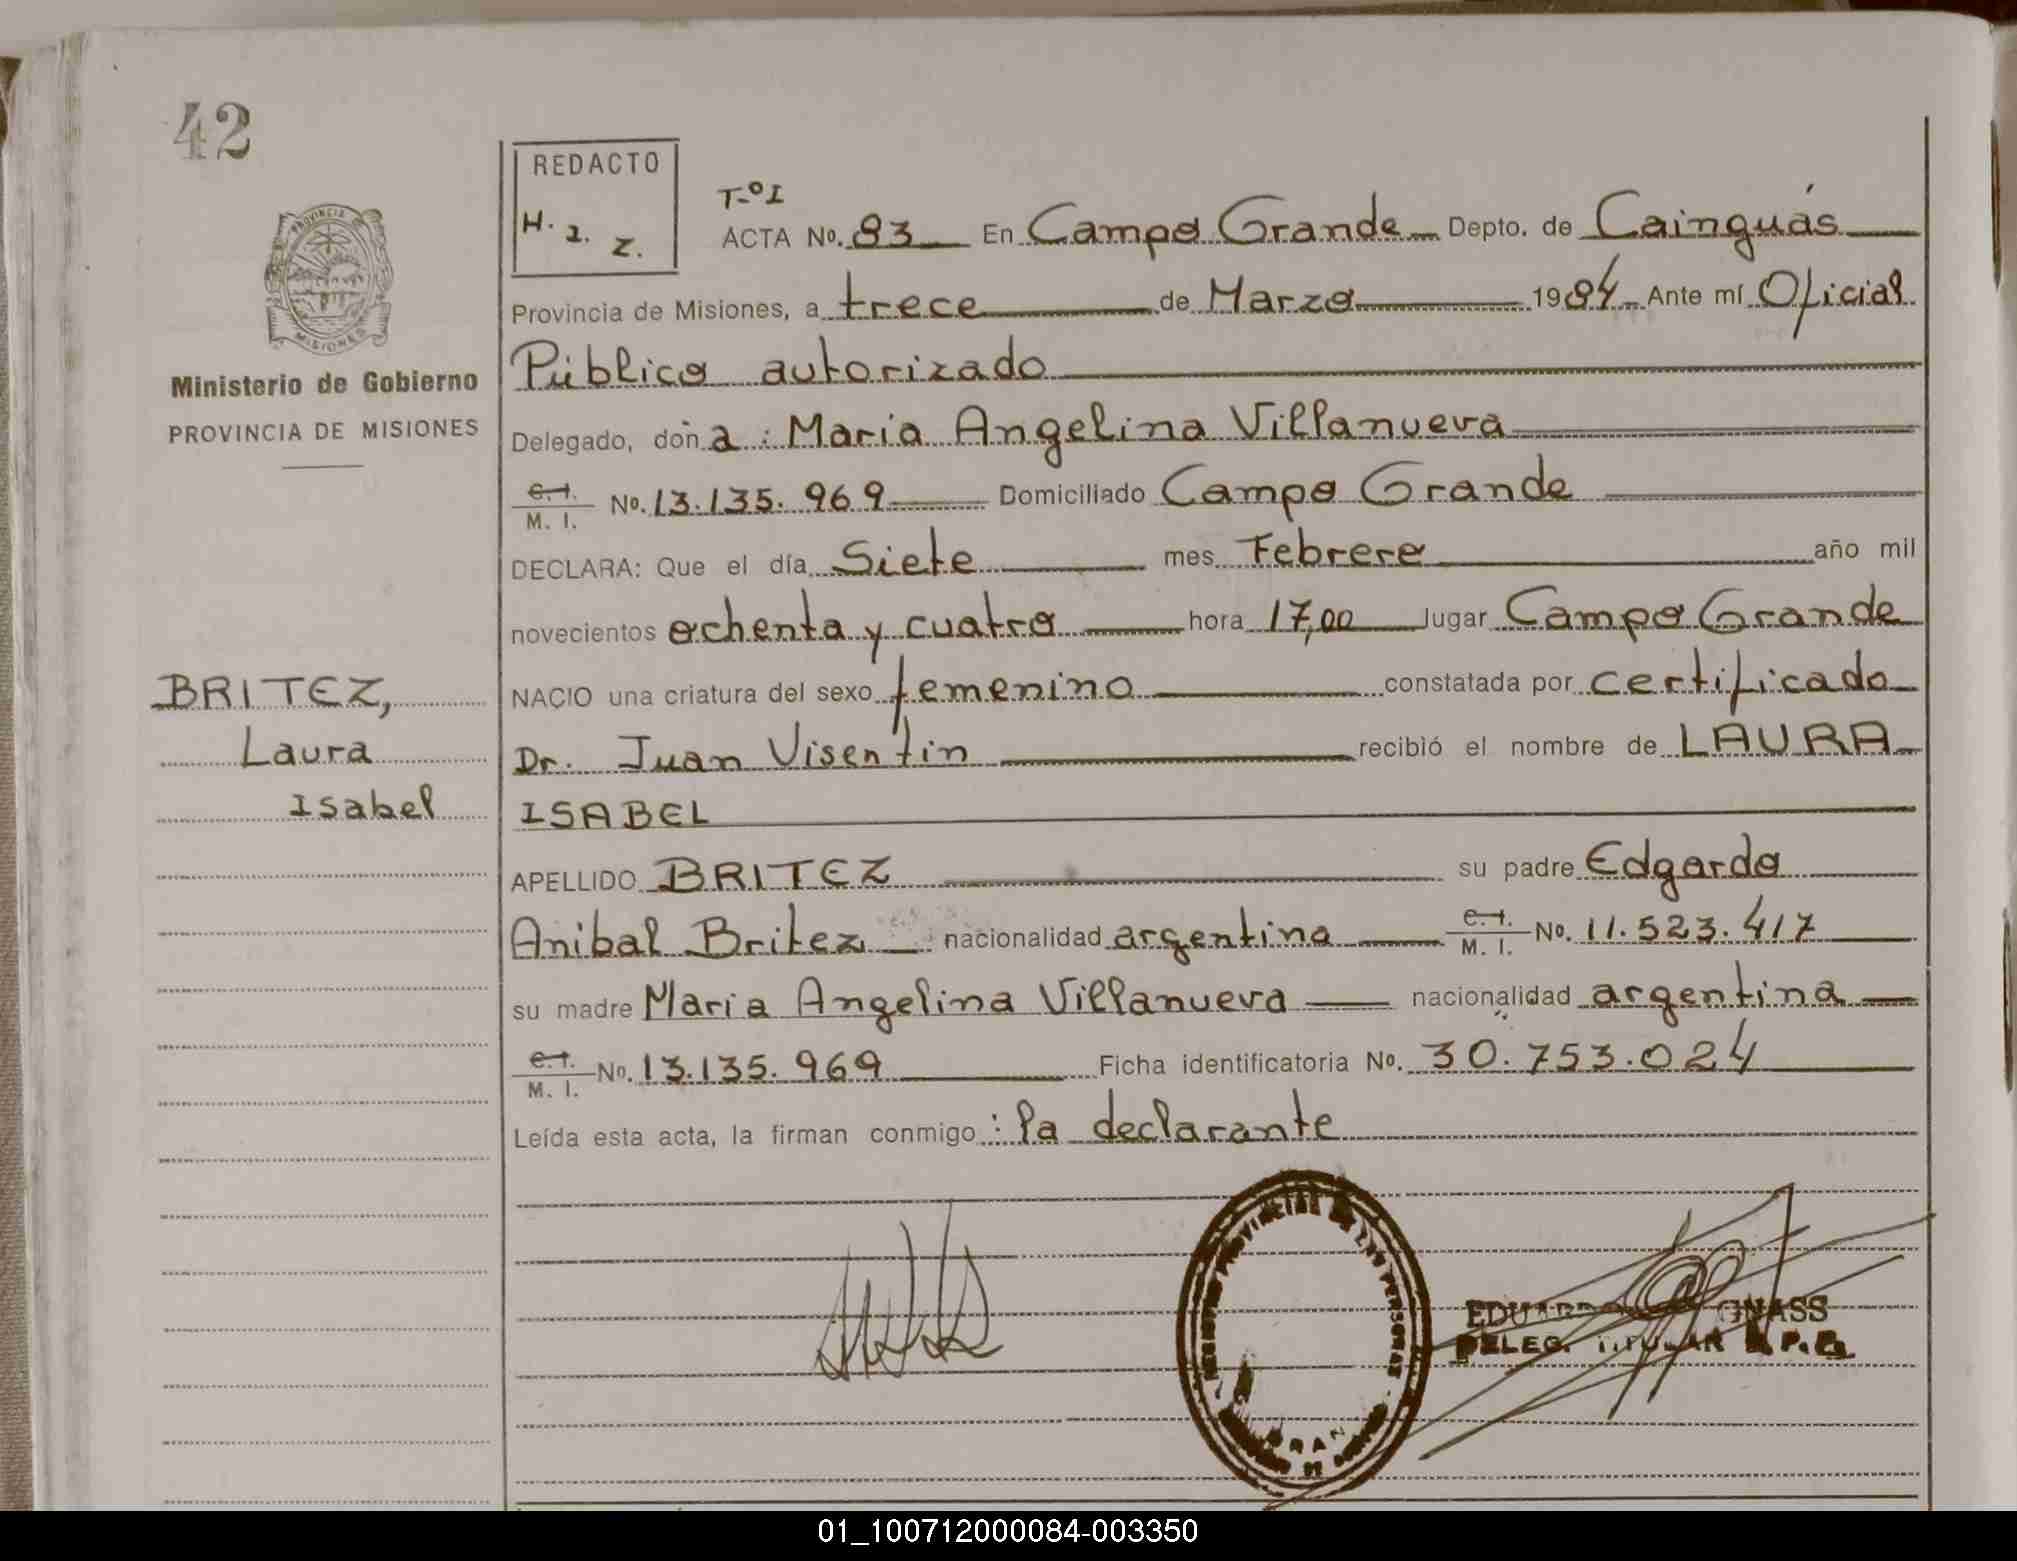 42
REDACTO
H. I. Z.
T-º I
ACTA No. 83 En Campo Grande Depto. de Cainguás
Provincia de Misiones, a trece de Marzo 1984 Ante mí Oficial
Público autorizado
Delegado, don a : Maria Angelina Villanueva
C. I. M. I. No. 13.135.969 Domiciliado Campo Grande
DECLARA: Que el día Siete mes Febrero año mil
novecientos ochenta y cuatro hora 17,00 lugar Campo Grande
NACIO una criatura del sexo femenino constatada por certificado
Dr. Juan Visentin recibió el nombre de LAURA
ISABEL
APELLIDO BRITEZ su padre Edgardo
Anibal Britez nacionalidad argentina C. I. M. I. No. 11.523.417
su madre Maria Angelina Villanueva nacionalidad argentina
C. I. M. I. No. 13.135.969 Ficha identificatoria No. 30.753.024
Leída esta acta, la firman conmigo : la declarante
PROVINCIA DE MISIONES
Ministerio de Gobierno
PROVINCIA DE MISIONES
BRITEZ,
Laura
Isabel
PROVINCIAL DE LAS PERSONAS
DELEG. TITULAR R.P.P.
01_100712000084-003350